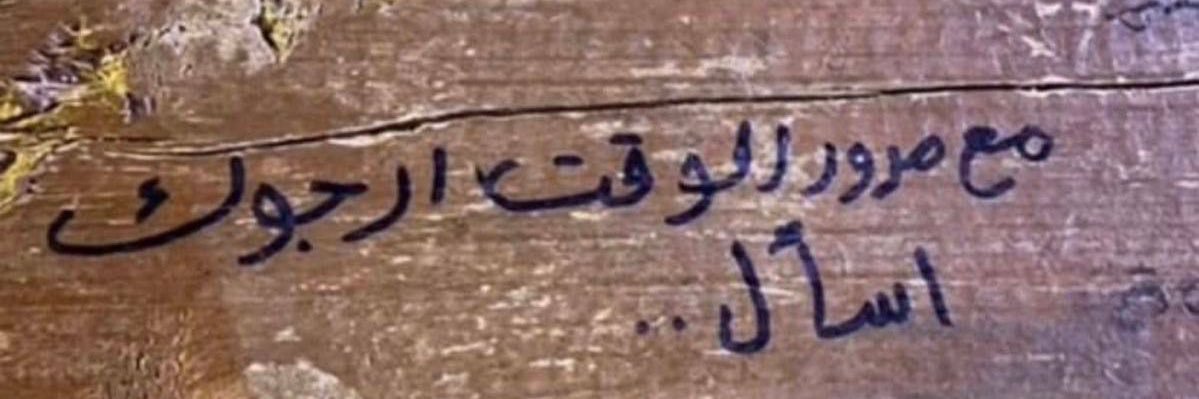 مع مرور الوقت، ارجوك
اسأل..